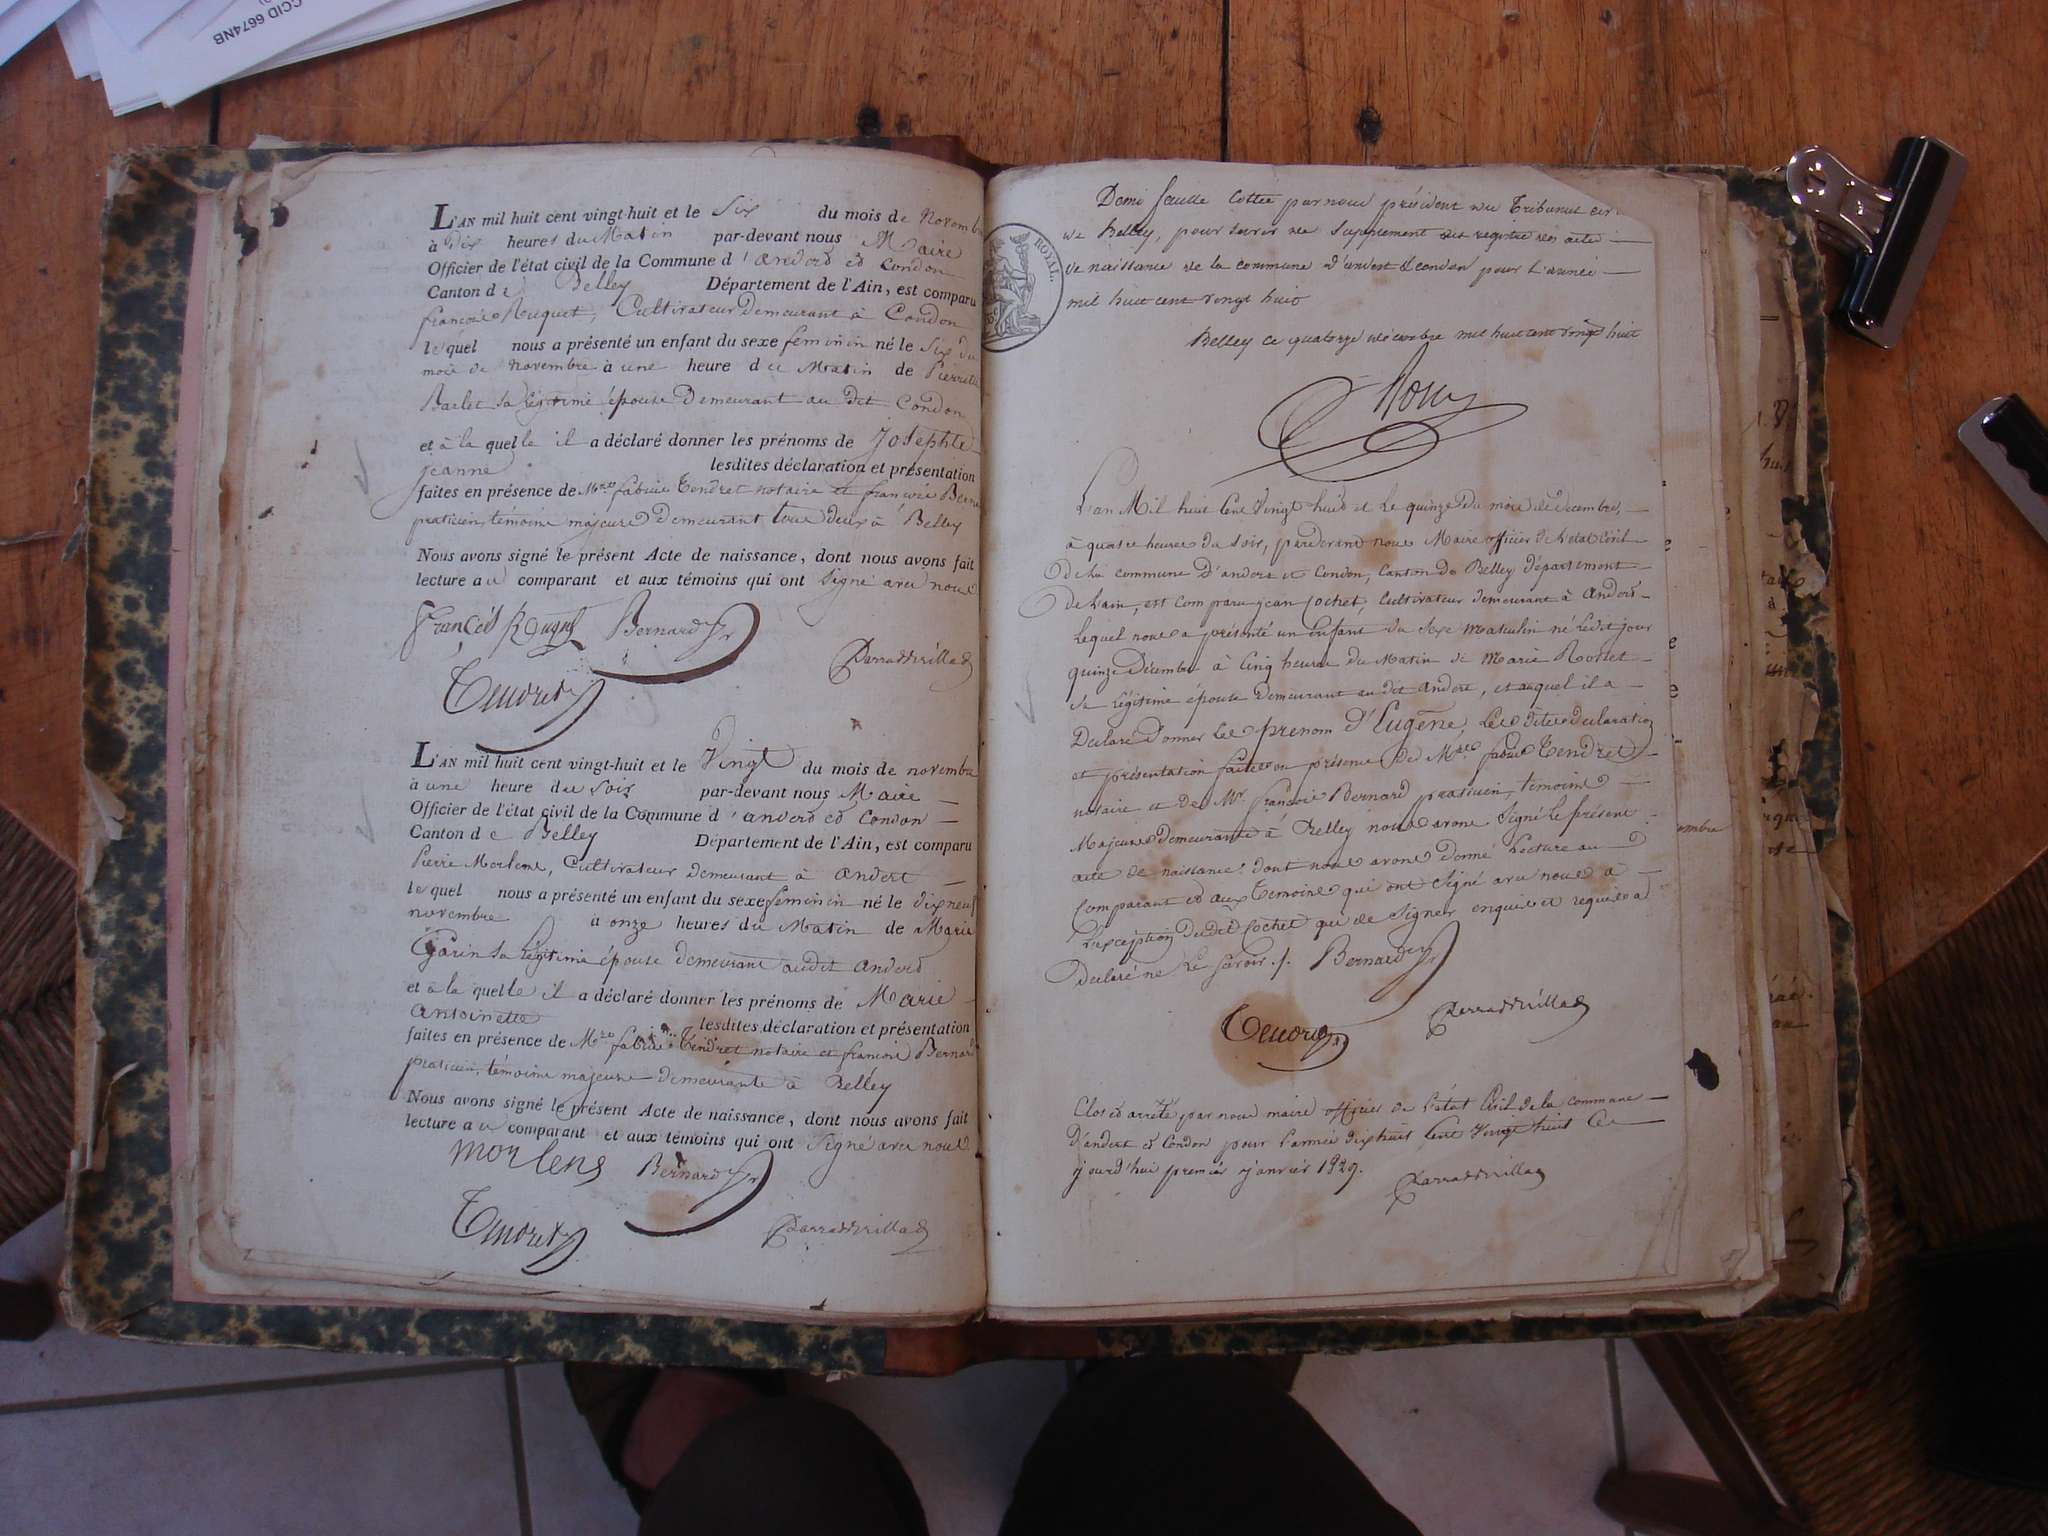 CCID 6674NB
L'AN mil huit cent vingt-huit et le Six du mois de Novembre
à Dix heures du Matin par-devant nous Maire
Officier de l'état civil de la Commune d'andert et Condon
Canton de Belley Département de l'Ain, est comparu
françois Cultivateur Demeurant à Condon
lequel nous a présenté un enfant du sexe feminin né le Six du
mois de Novembre à une heure du Matin de Pierrette
Barlet sa légitime épouse Demeurant au dit Condon
et à la quelle il a déclaré donner les prénoms de Josephte
jeanne lesdites déclaration et présentation
faites en présence de Mres fabrice Tendret notaire et françois Bernard
praticien, témoins majeurs Demeurant tous deux à Belley
Nous avons signé le présent Acte de naissance, dont nous avons fait
lecture au comparant et aux témoins qui ont Signé avec nous
Bernard
Tendret
L'AN mil huit cent vingt-huit et le Vingt du mois de novembre
à une heure du Soir par-devant nous Maire
Officier de l'état civil de la Commune d'andert et Condon
Canton de Belley Département de l'Ain, est comparu
Pierre Morlens, Cultivateur Demeurant à andert
lequel nous a présenté un enfant du sexe feminin né le dix neuf
novembre a onze heures du Matin de Marie
Garin sa légitime épouse demeurant audit andert
et à la quelle il a déclaré donner les prénoms de Marie
antoinette lesdites déclaration et présentation
faites en présence de Mres fabrice Tendret notaire et francois Bernard
praticien, témoins majeurs demeurants à Belley
Nous avons signé le présent Acte de naissance, dont nous avons fait
lecture au comparant et aux témoins qui ont Signé avec nous
morlens Bernard
Tendret
ROYAL.
Demi feuille Cottée par nous président du Tribunal
de Belley, pour servir de Supplement des registre des actes
de naissance de la commune d'andert & condon pour l'année
mil huit cent vingt huit
Belley ce quatorze décembre mil huit cent vingt huit
L'an Mil huit Cent Vingt huit et le quinze du mois de décembre,
à quatre heures du soir, pardevant nous Maire officier de l'etat Civil
de la commune d'andert et Condon, Canton de Belley département
de l'ain, est comparu jean Cochet, Cultivateur demeurant à andert
lequel nous a présenté un Enfant du Sexe masculin né ledit jour
quinze Décembre à Cinq heures du Matin de Marie
sa légitime épouse demeurant au dit andert, et auquel il a
Déclaré Donner le prenom d'Eugène, les dites déclaration
et présentation faites en présence de Mres fabrice Tendret
notaire et de Mr. françois Bernard praticien, témoins
Majeurs demeurants à Belley nous avons Signé le présent
acte de naissance dont nous avons donné lecture au
Comparant et aux Temoins qui ont Signé avec nous à
l'exception dudit Cochet qui de Signer enquis et requis a
Déclaré ne le savoir ./. Bernard
Tendret
Clos et arrêté par nous maire officier de l'état Civil de la commune
d'andert et Condon pour l'année dix huit Cent Vingt huit Ce
jourd'hui premier janvier 1829.